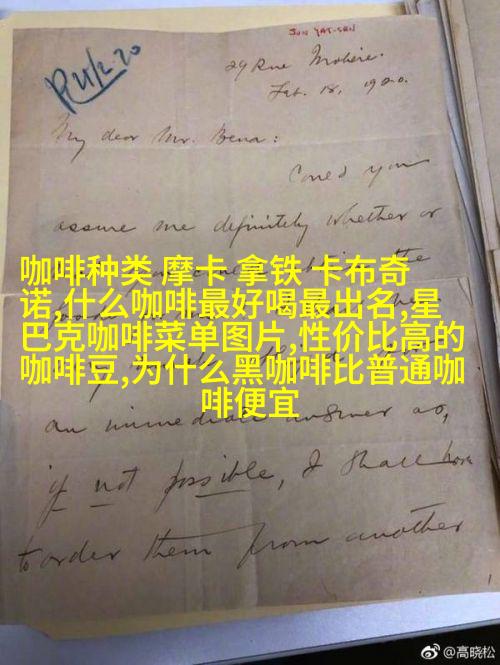 SUN YAT-SEN
R 21/2.20
29 Rue Molière.
Feb. 18, 1920.
My dear Mr. Bena:
Could you
assure me definitely whether or
咖啡种类 摩卡 拿铁 卡布奇
诺,什么咖啡最好喝最出名,星
巴克咖啡菜单图片,性价比高的
咖啡豆,为什么黑咖啡比普通咖
啡便宜
an immediate answer as,
if not possible, I shall have
to order them from another
@高晓松